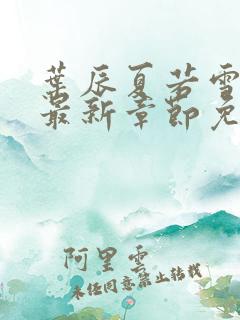 叶辰夏若雪
最新章节免
阿里云
未经同意禁止转载